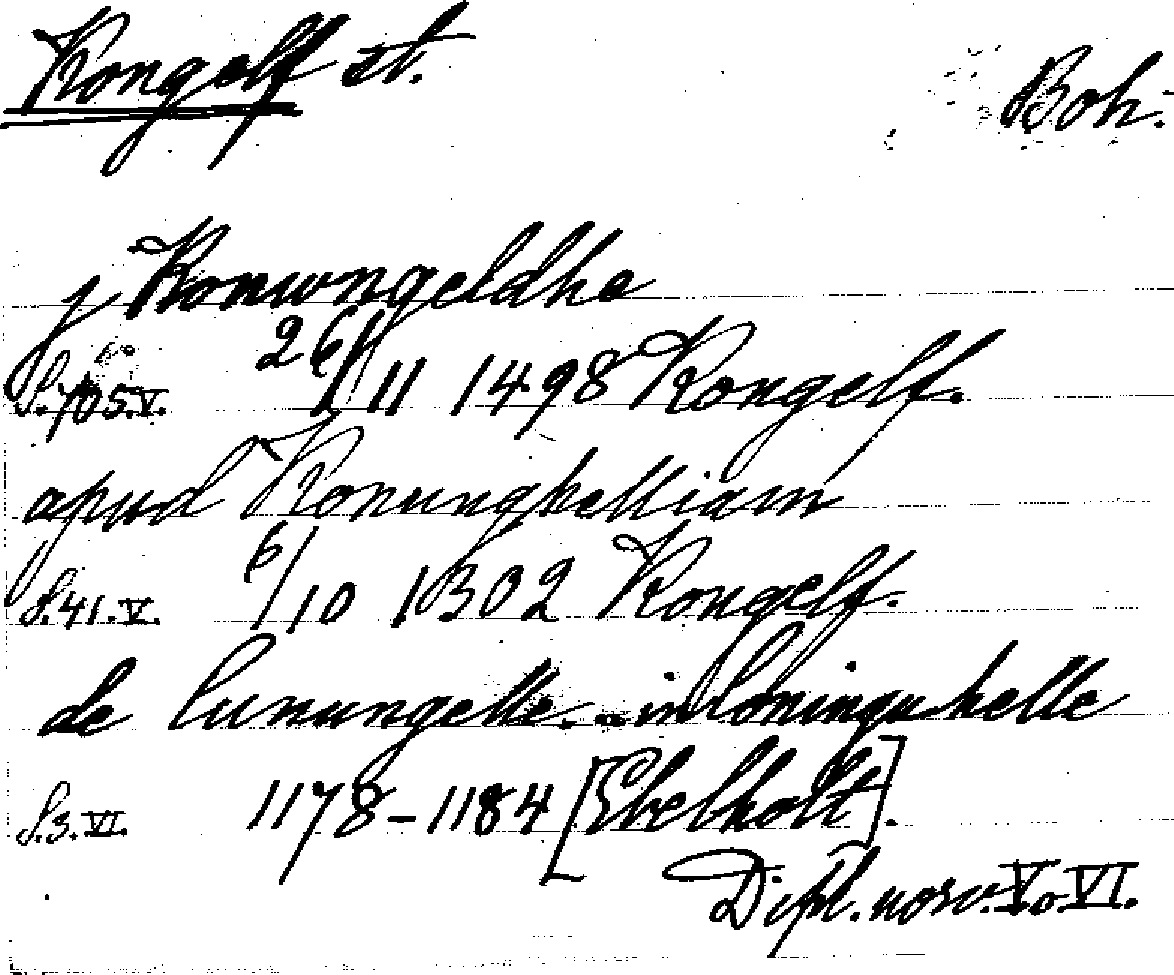 Kongelf st. Boh.
j Konwngeldhe
S. 705. V. 26/11 1498 Kongelf.
apud Konunghelliam
S. 41. V. 6/10 1302 Kongelf.
de Cunungelle. - in Coninguhelle
S. 3. VI. 1178-1184 [Ebelholt].
Dipl. norv. V. o. VI.